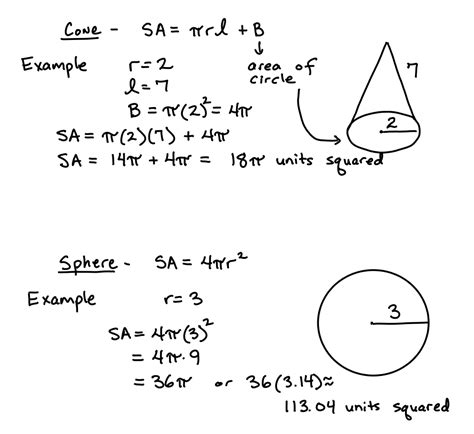 Cone - SA = πrl + B
↓
Example r = 2 area of circle
l = 7 7
B = π(2)² = 4π
SA = π(2)(7) + 4π 2
SA = 14π + 4π = 18π units squared
Sphere - SA = 4πr²
Example r = 3
3
SA = 4π(3)²
= 4π·9
= 36π or 36(3.14)≈
113.04 units squared